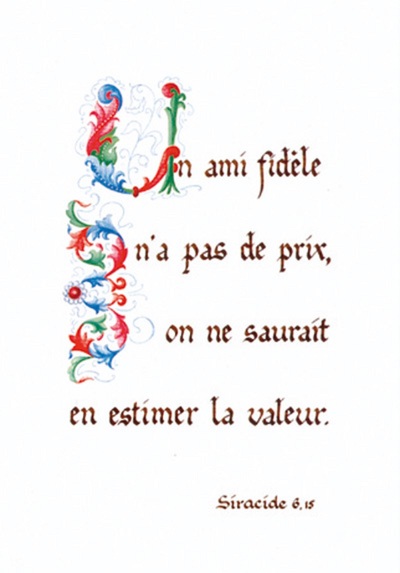 Un ami fidèle
n'a pas de prix,
on ne saurait
en estimer la valeur.
Siracide 6,15